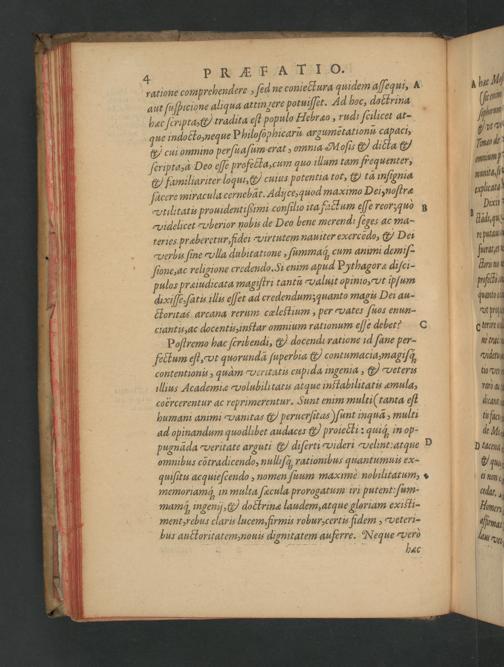 4
PRÆFATIO.
ratione comprehendere, sed ne coniectura quidem assequi, A
aut suspicione aliqua attingere potuisset. Ad hoc, doctrina
hæc scripta, & tradita est populo Hebræo, rudi scilicet at-
que indocto, neque Philosophicarũ argumẽtationũ capaci,
& cui omnino persuasum erat, omnia Mosis & dicta &
scripta, à Deo esse profecta, cum quo illum tam frequenter,
& familiariter loqui, & cuius potentia tot, & tã insignia
facere miracula cernebãt. Adijce, quod maximo Dei, nostræ
vtilitatis prouidentissimi consilio ita factum esse reor; quò B
videlicet vberior nobis de Deo bene merendi seges ac ma-
teries præberetur, fidei virtutem nauiter exercẽdo, & Dei
verbis sine vlla dubitatione, summaq́; cum animi demis-
sione, ac religione credendo. Si enim apud Pythagoræ disci-
pulos præiudicata magistri tantũ valuit opinio, vt ipsum
dixisse, satis illis esset ad credendum; quanto magis Dei au-
ctoritas arcana rerum cælestium, per vates suos enun-
ciantis, ac docentis, instar omnium rationum esse debet? C
Postremo hæc scribendi, & docendi ratione id sane per-
fectum est, vt quorundã superbia & contumacia, magisq́;
contentionis, quàm veritatis cupida ingenia, & veteris
illius Academiæ volubilitatis atque instabilitatis æmula,
coërcerentur ac reprimerentur. Sunt enim multi (tanta est
humani animi vanitas & peruersitas) sunt inquã, multi
ad opinandum quodlibet audaces & proiecti: quiq́; in op-
pugnãda veritate arguti & diserti videri velint: atque D
omnibus cõtradicendo, nullisq́; rationibus quantumuis ex-
quisitis acquiescendo, nomen suum maximè nobilitatum,
memoriamq́; in multa sæcula prorogatum iri putent: sum-
mamq́; ingenij, & doctrinæ laudem, atque gloriam existi-
ment, rebus claris lucem, firmis robur, certis fidem, veteri-
bus auctoritatem, nouis dignitatem auferre. Neque verò
hæc